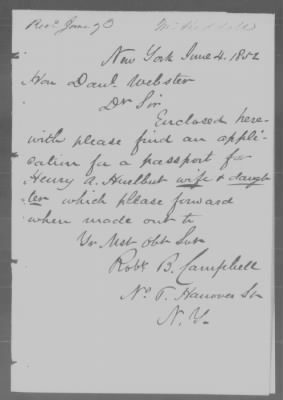 Recd June 5
New York June 4. 1852
Hon Danl. Webster
Dr Sir
Enclosed here-
with please find an appli-
cation for a passport for
Henry A. Hurlbut wife & daugh-
ter which please forward
when made out to
Yr Mst Obt Svt
Robt B. Campbell
No 7. Hanover St
N. Y.